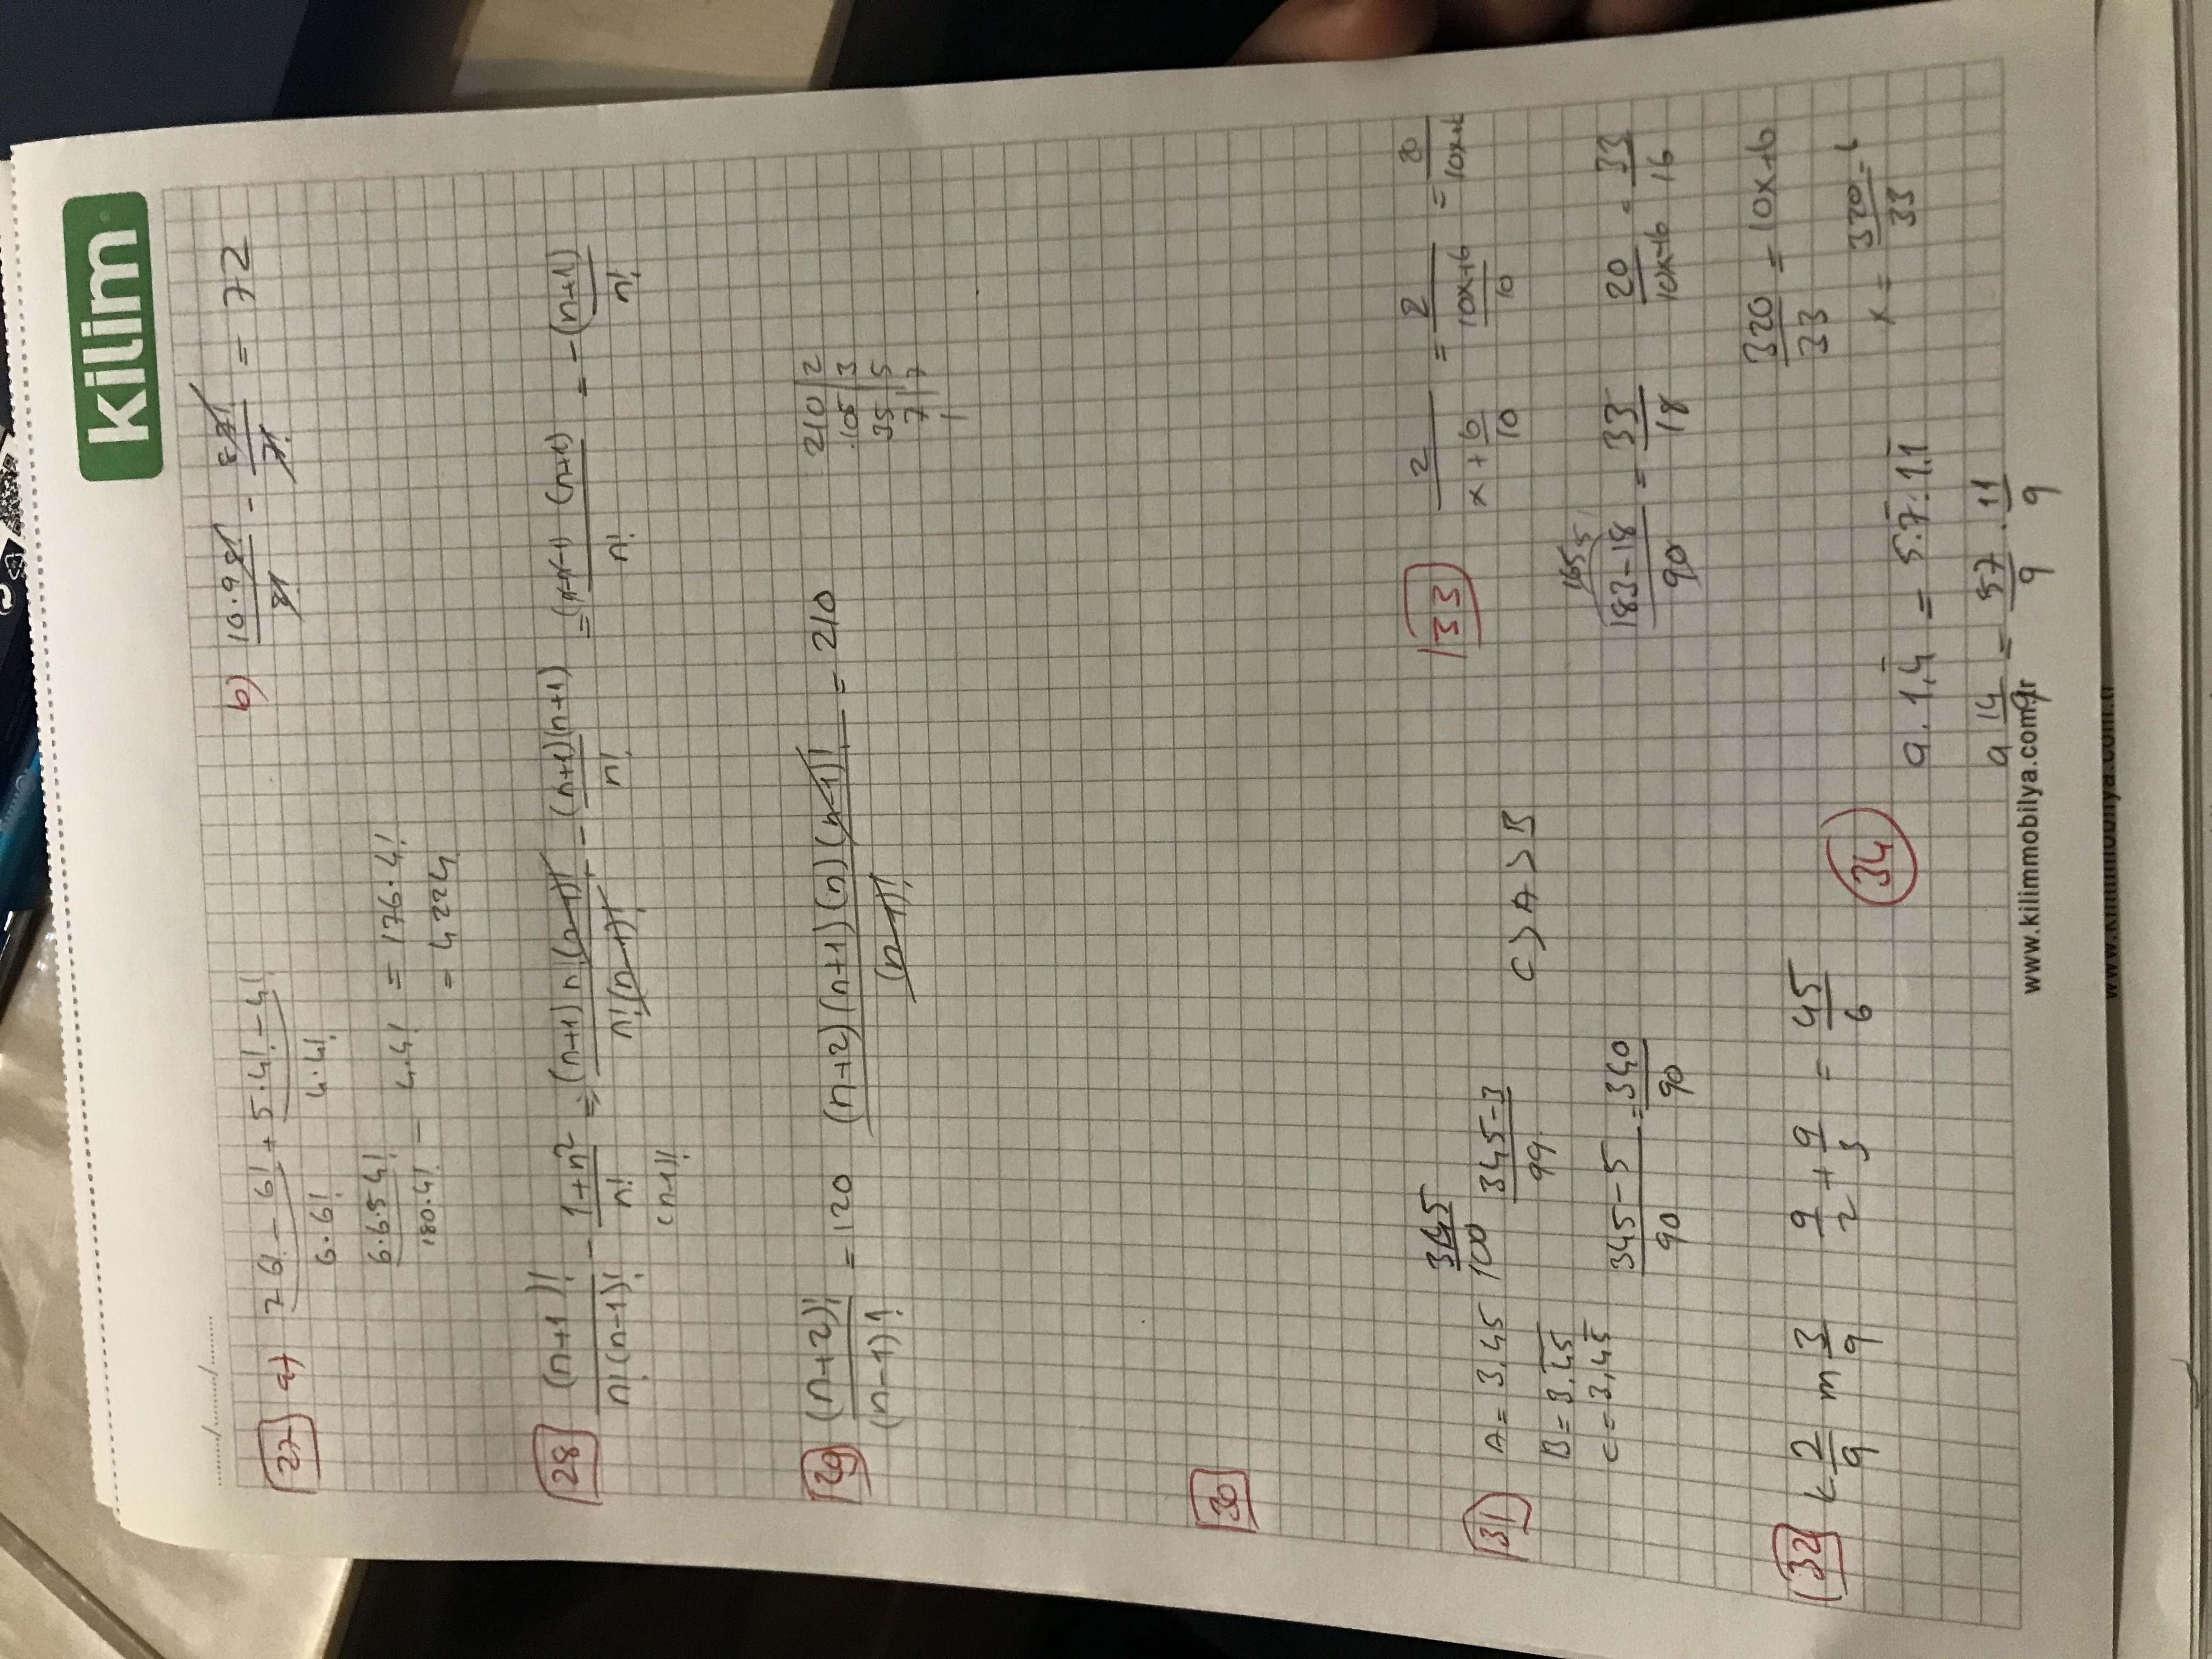 kilim
......../......../........
27 a) 7 6! - 6! + 5·4! - 4!
6·6! 4·4!
6·6·5 4!
180·4! - 4·4! = 176·4!
= 4224
b) 10·9 8!/8! - 8 7!/7! = 72
28 (n+1)!/n!(n-1)! - 1+n²/n! = (n+1) n (n-1)!/n!(n-1)! - (n+1)(n+1)/n! = (n+1)/n! = -(n+1)/n!
(n-1)!
29 (n+2)!/(n-1)! = 120 (n+2)(n+1)(n)(n-1)!/(n-1)! = 210
210 | 2
105 | 3
35 | 5
7 | 7
1
30
31 A = 3,45 345/100
345-3/99
B = 3,4̅5̅
C = 3,45̅
C > A > B
345-5/90 = 340/90
33 2/x+6/10 = 2/10x+6/10 = 20/10x+6
165
183-18/90 = 33/18 20/10x+6 = 33/16
320/33 = 10x+6
x = 320-6/33
32 k 2/9 m 3/9 9/2 + 9/3 = 45/6
34
a. 1,4̅ = 5.7̅. 1.1̅
a 14/9 = 57/9 . 11/9
www.kilimmobilya.com.tr
www.kilimmobilya.com.tr